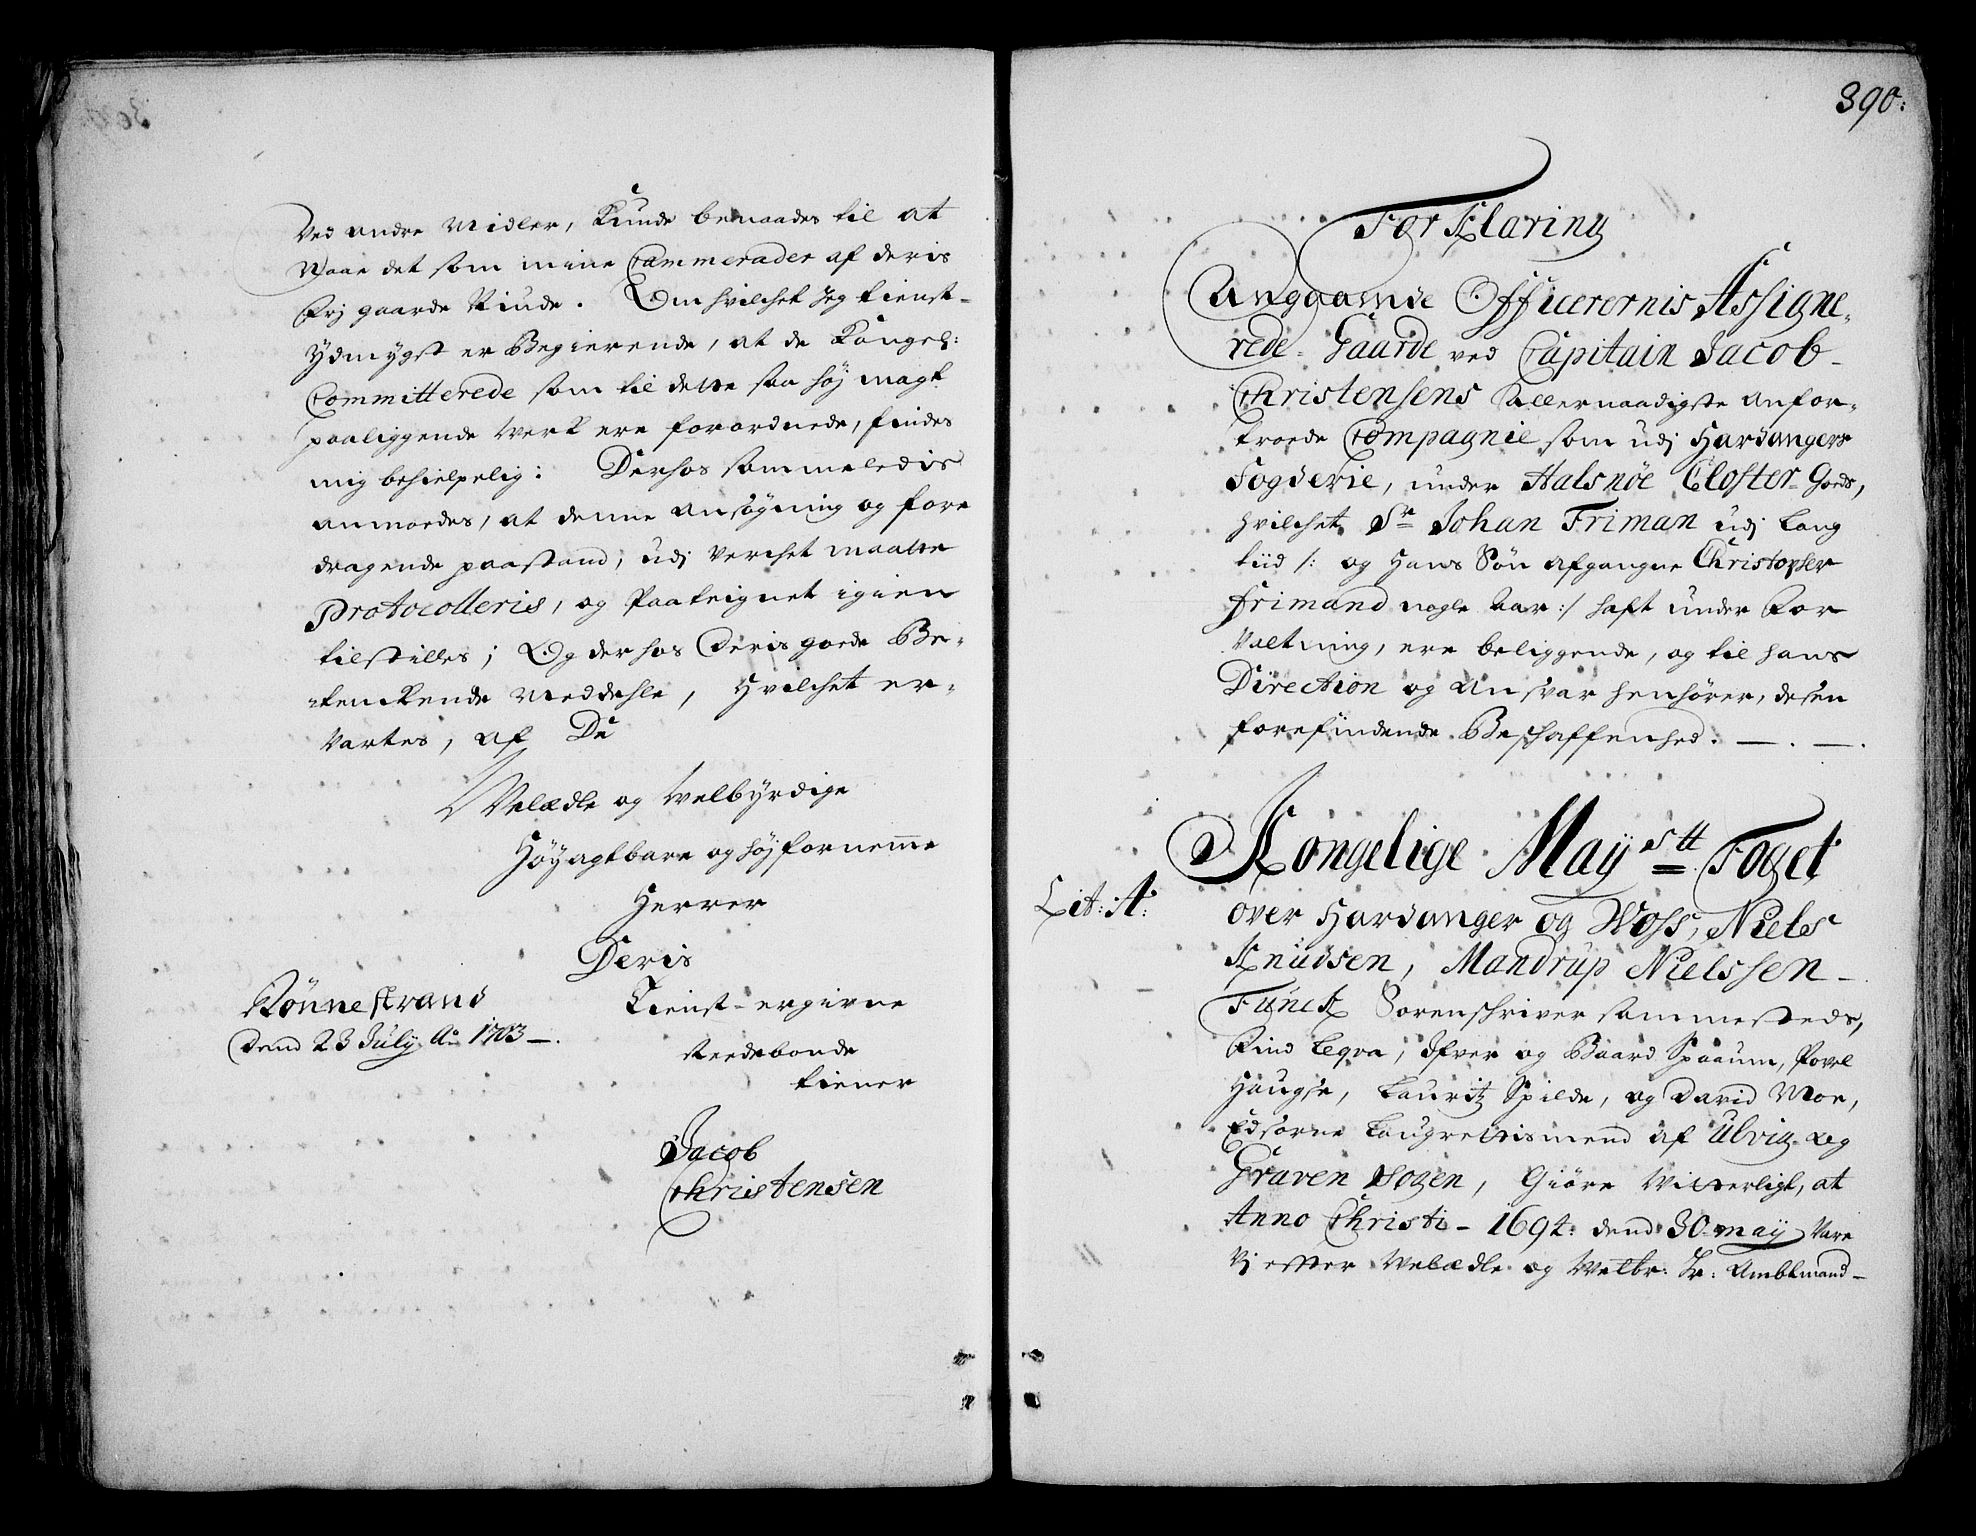 Ved andre Midler, Kunde benaades til at
Naae det som mine Cammerader af deris
Frj gaarde Niude. Om hvilchet Jeg tienst-
Ydmygst er Begierende, at de Kongel:
Committerede som til dette saa høj magt
paaliggende Verk ere forordnede, findes
mig behielpelig: Derhos sammeledis
anmodes, at denne ansøgning og fore
dragende paastand, udj Verchet maatte
Protocolleris, og Paateignet igien
tilstilles; Og der hos Deris goede Be-
tenckende meddehle, Hvilchet er-
Vartes, af De
Velædle og Velbyrdige
Høyagtbare og høyfornemme
Herrer
Deris
Rønnestrand
Dend 23 July Ao 1703 —.
Tienst-ergivne
reedebonde
tiener
Jacob
Christensen
390:
For Klaring
Anggaande Officerernis Assigne-
rede Gaarde ved Capitain Jacob
Christensens Allernaadigste anfor-
troede Compagnie som udj Hardangers
Fogderie, under Halsnøe Closter Goeds,
hvilchet Sr Johan Friman udj Lang
tiid /: og Hans Søn afgangne Christopher
Frimand nogle Aar :/ haft under For
Valtning, ere beliggende, og til hans
Direction og Ansvar henhører, desen
forefindende Beschaffenhed. —.—.
Kongelige Maystt Foget
Lit: A:
over Hardanger og Woss, Niels
Knudsen, Mandrup Nielssen
Funck Sorenschriver sammesteds,
Legra, Ifver og Baard Spaaum, Povel
Haugse, Lauritz Spilde, og David Moe,
Edsorne Laugrettismend af Ulvig og
Graven Sogen, Giøre Vitterligt, at
Anno Christi - 1694: dend 30 may Vare
Vj efter Velædle og Velbr: Hr: Ambtmand-